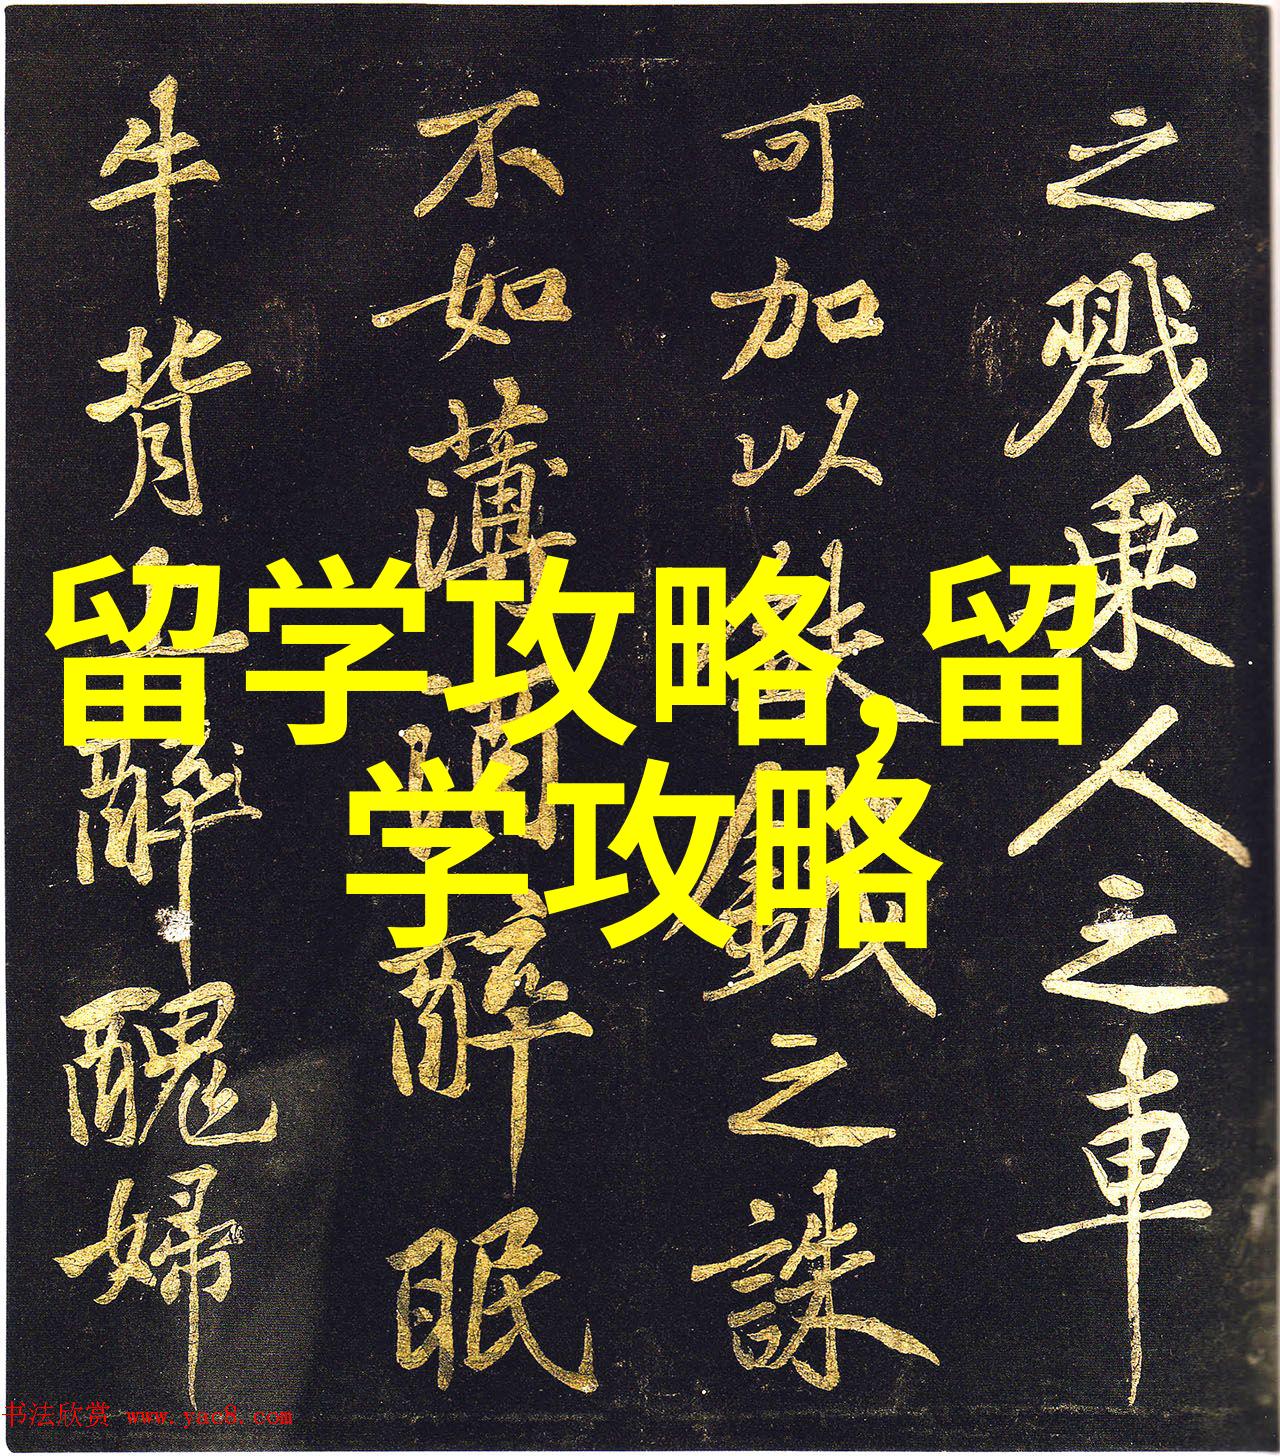 之戮乘人之車
可加以之誅
不如薄酒醉眠
牛背上醉醜婦
留学攻略,留
学攻略
书法欣赏 www.yac8.com